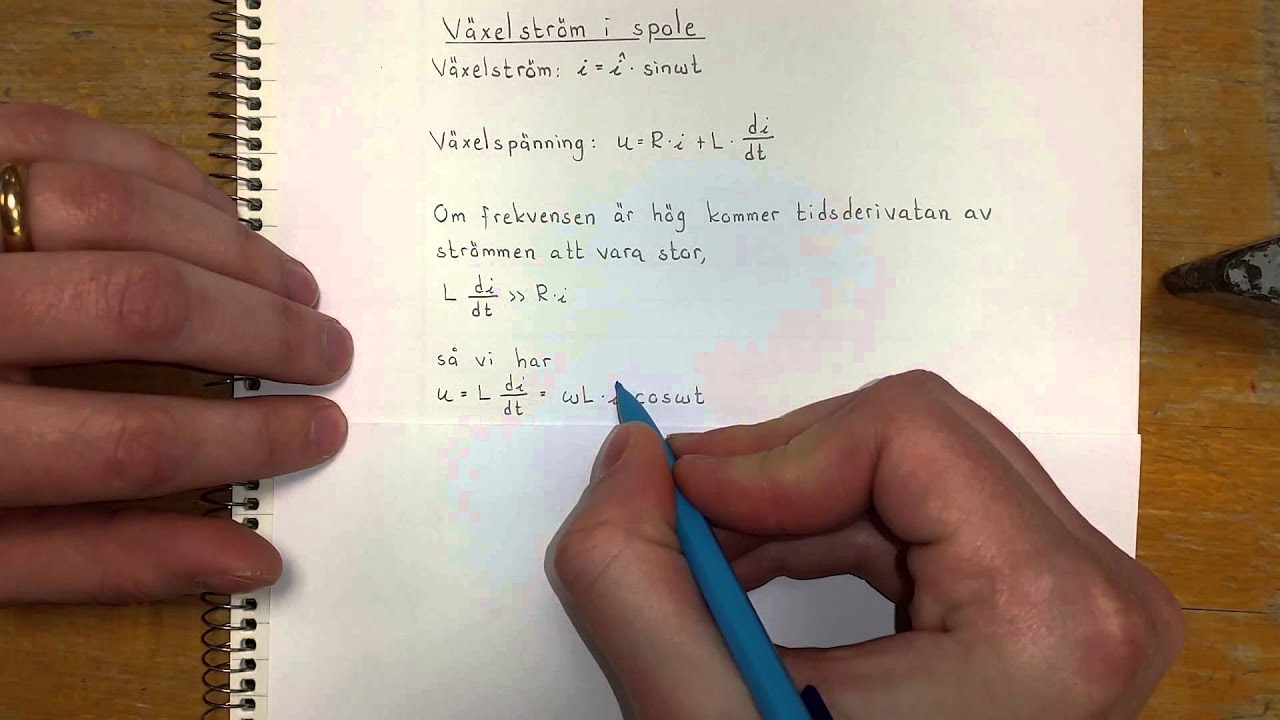 Växelström i spole
Växelström: i = î · sinωt
Växelspänning: u = R·i + L · di/dt
Om frekvensen är hög kommer tidsderivatan av
strömmen att vara stor,
L di/dt >> R·i
så vi har
u = L di/dt = ωL · cosωt